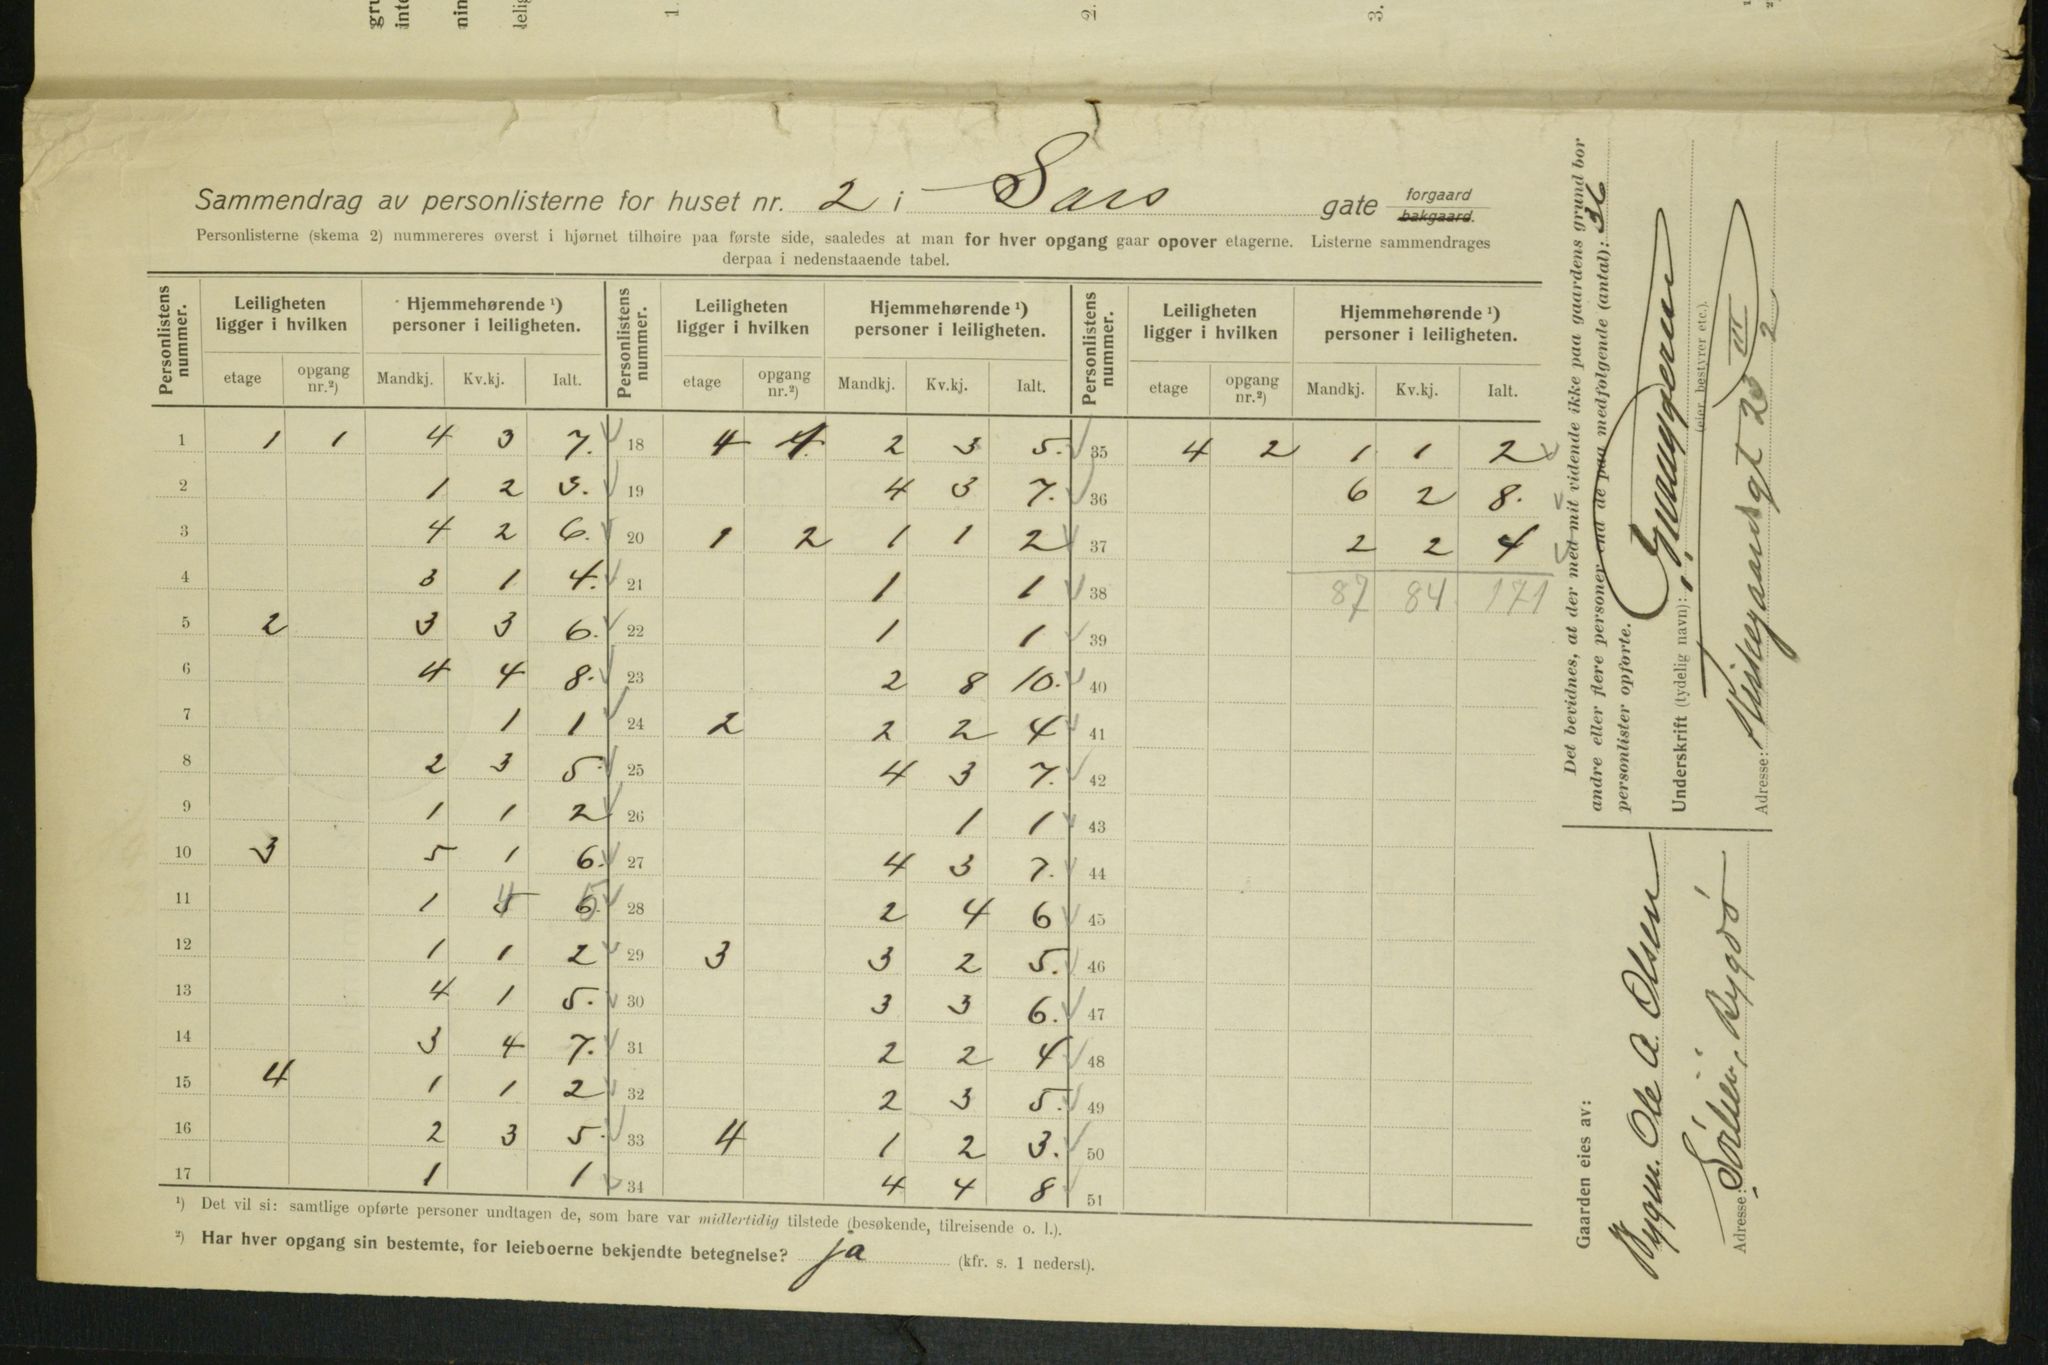 Sammendrag av personlisterne for huset nr. 2 i Sars gate forgaard
bakgaard.
Personlisterne (skema 2) nummereres øverst i hjørnet tilhøire paa første side, saaledes at man for hver opgang gaar opover etagerne. Listerne sammendrages
derpaa i nedenstaaende tabel.
Personlistens nummer. Leiligheten ligger i hvilken Hjemmehørende ¹) personer i leiligheten. Personlistens nummer. Leiligheten ligger i hvilken Hjemmehørende ¹) personer i leiligheten. Personlistens nummer. Leiligheten ligger i hvilken Hjemmehørende ¹) personer i leiligheten.
etage opgang nr.²) Mandkj. Kv.kj. Ialt. etage opgang nr.²) Mandkj. Kv.kj. Ialt. etage opgang nr.²) Mandkj. Kv.kj. Ialt.
1 1 1 4 3 7. 18 4 1. 2 3 5. 35 4 2 1 1 2
2 1 2 3. 19 4 3 7. 36 6 2 8.
3 4 2 6. 20 1 2 1 1 2 37 2 2 4
4 3 1 4. 21 1 1 38 87 84 171
5 2 3 3 6. 22 1 1 39
6 4 4 8. 23 2 8 10. 40
7 1 1 24 2 2 2 4 41
8 2 3 5. 25 4 3 7. 42
9 1 1 2 26 1 1 43
10 3 5 1 6. 27 4 3 7. 44
11 1 4 5 28 2 4 6 45
12 1 1 2 29 3 3 2 5. 46
13 4 1 5. 30 3 3 6. 47
14 3 4 7. 31 2 2 4 48
15 4 1 1 2 32 2 3 5. 49
16 2 3 5. 33 4 1 2 3. 50
17 1 1 34 4 4 8 51
¹) Det vil si: samtlige opførte personer undtagen de, som bare var midlertidig tilstede (besøkende, tilreisende o. l.).
²) Har hver opgang sin bestemte, for leieboerne bekjendte betegnelse? ja (kfr. s. 1 nederst).
Det bevidnes, at der med mit vidende ikke paa gaardens grund bor
andre eller flere personer end de paa medfølgende (antal): 36
personlister opførte.
Underskrift (tydelig navn):
(eier, bestyrer etc.).
Adresse: 23 III
2
Gaarden eies av:
Bygm. Ole A. Olsen
Adresse: Bygdö
1.
2.
3.